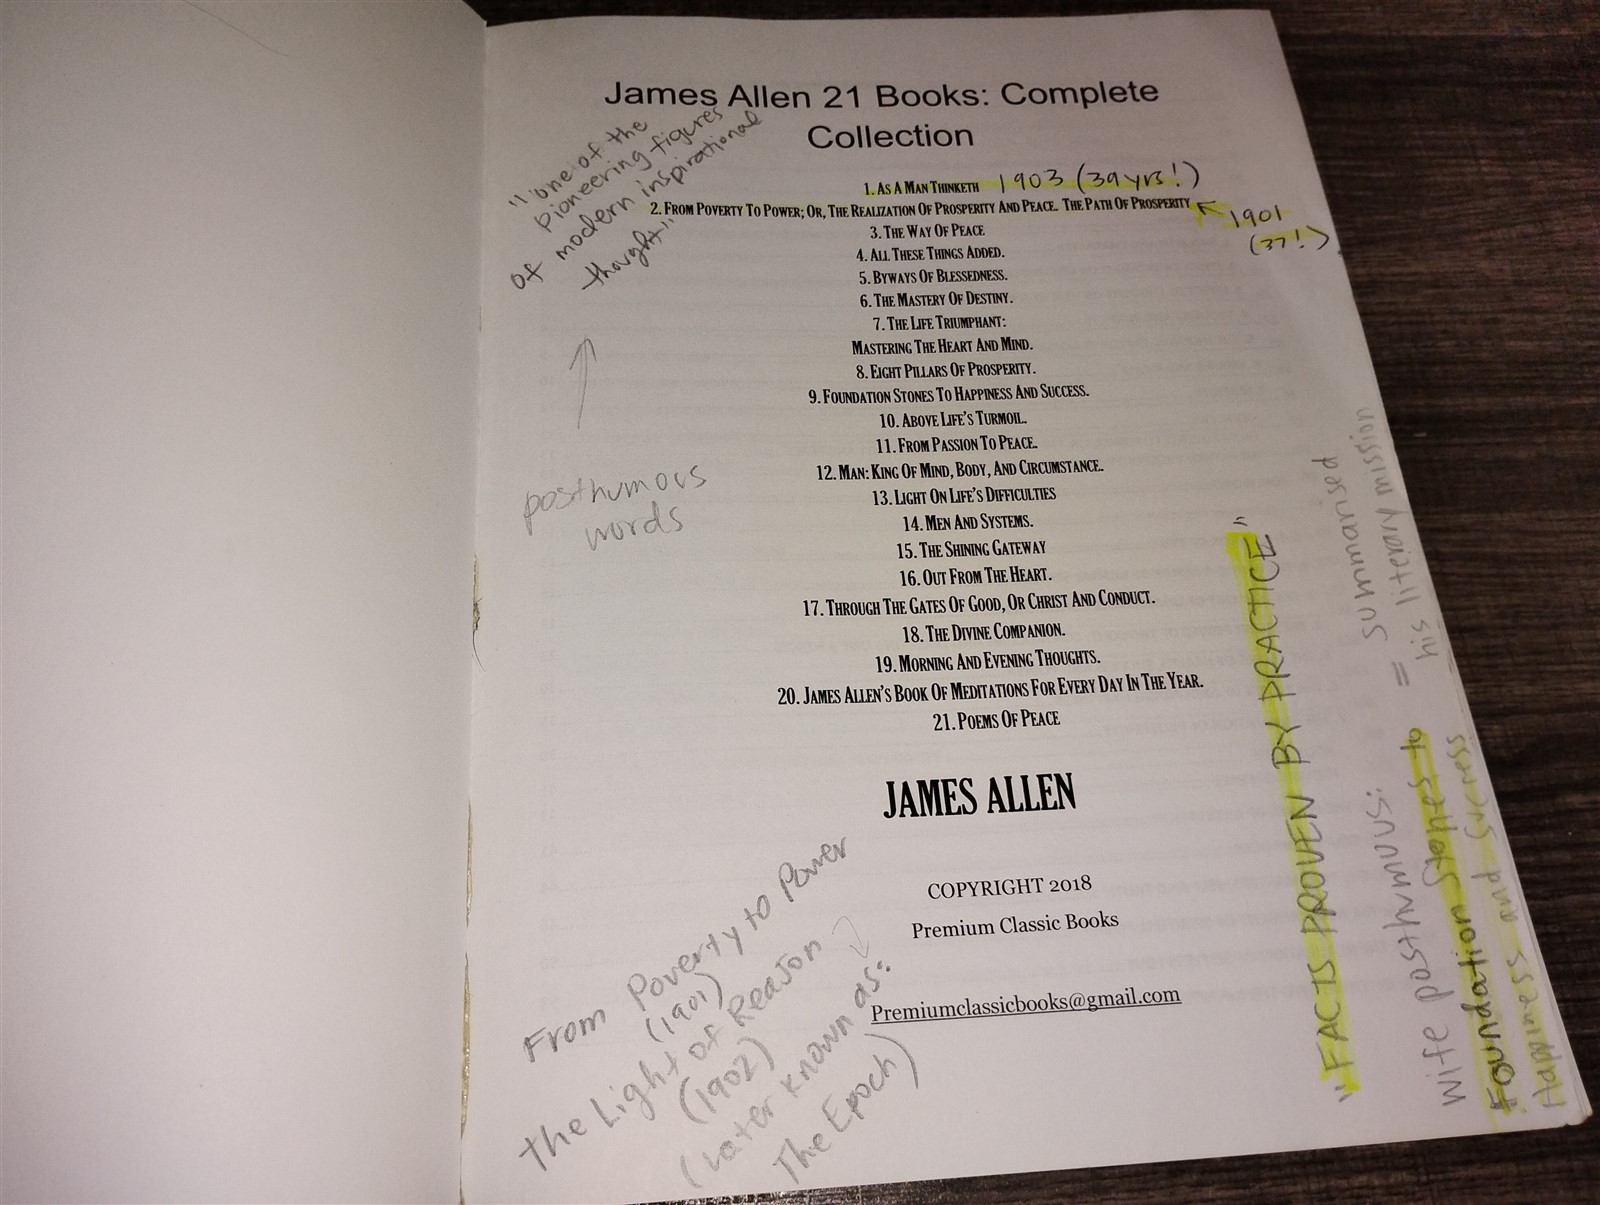 James Allen 21 Books: Complete
Collection
"one of the
pioneering figures
of modern inspirational
thought"
1. AS A MAN THINKETH 1903 (39 yrs!)
2. FROM POVERTY TO POWER; OR, THE REALIZATION OF PROSPERITY AND PEACE. THE PATH OF PROSPERITY
1901
(37!)
3. THE WAY OF PEACE
4. ALL THESE THINGS ADDED.
5. BYWAYS OF BLESSEDNESS.
6. THE MASTERY OF DESTINY.
7. THE LIFE TRIUMPHANT:
MASTERING THE HEART AND MIND.
8. EIGHT PILLARS OF PROSPERITY.
9. FOUNDATION STONES TO HAPPINESS AND SUCCESS.
10. ABOVE LIFE'S TURMOIL.
11. FROM PASSION TO PEACE.
12. MAN: KING OF MIND, BODY, AND CIRCUMSTANCE.
13. LIGHT ON LIFE'S DIFFICULTIES
14. MEN AND SYSTEMS.
15. THE SHINING GATEWAY
16. OUT FROM THE HEART.
17. THROUGH THE GATES OF GOOD, OR CHRIST AND CONDUCT.
18. THE DIVINE COMPANION.
19. MORNING AND EVENING THOUGHTS.
20. JAMES ALLEN'S BOOK OF MEDITATIONS FOR EVERY DAY IN THE YEAR.
21. POEMS OF PEACE
posthumous
words
JAMES ALLEN
COPYRIGHT 2018
Premium Classic Books
Premiumclassicbooks@gmail.com
From Poverty to Power
(1901)
The Light of Reason
(1902)
(Later known as:
The Epoch)
"FACTS PROVEN BY PRACTICE"
= summarised
his literary mission
Wife posthumous:
Foundation Stones to
Happiness and Success